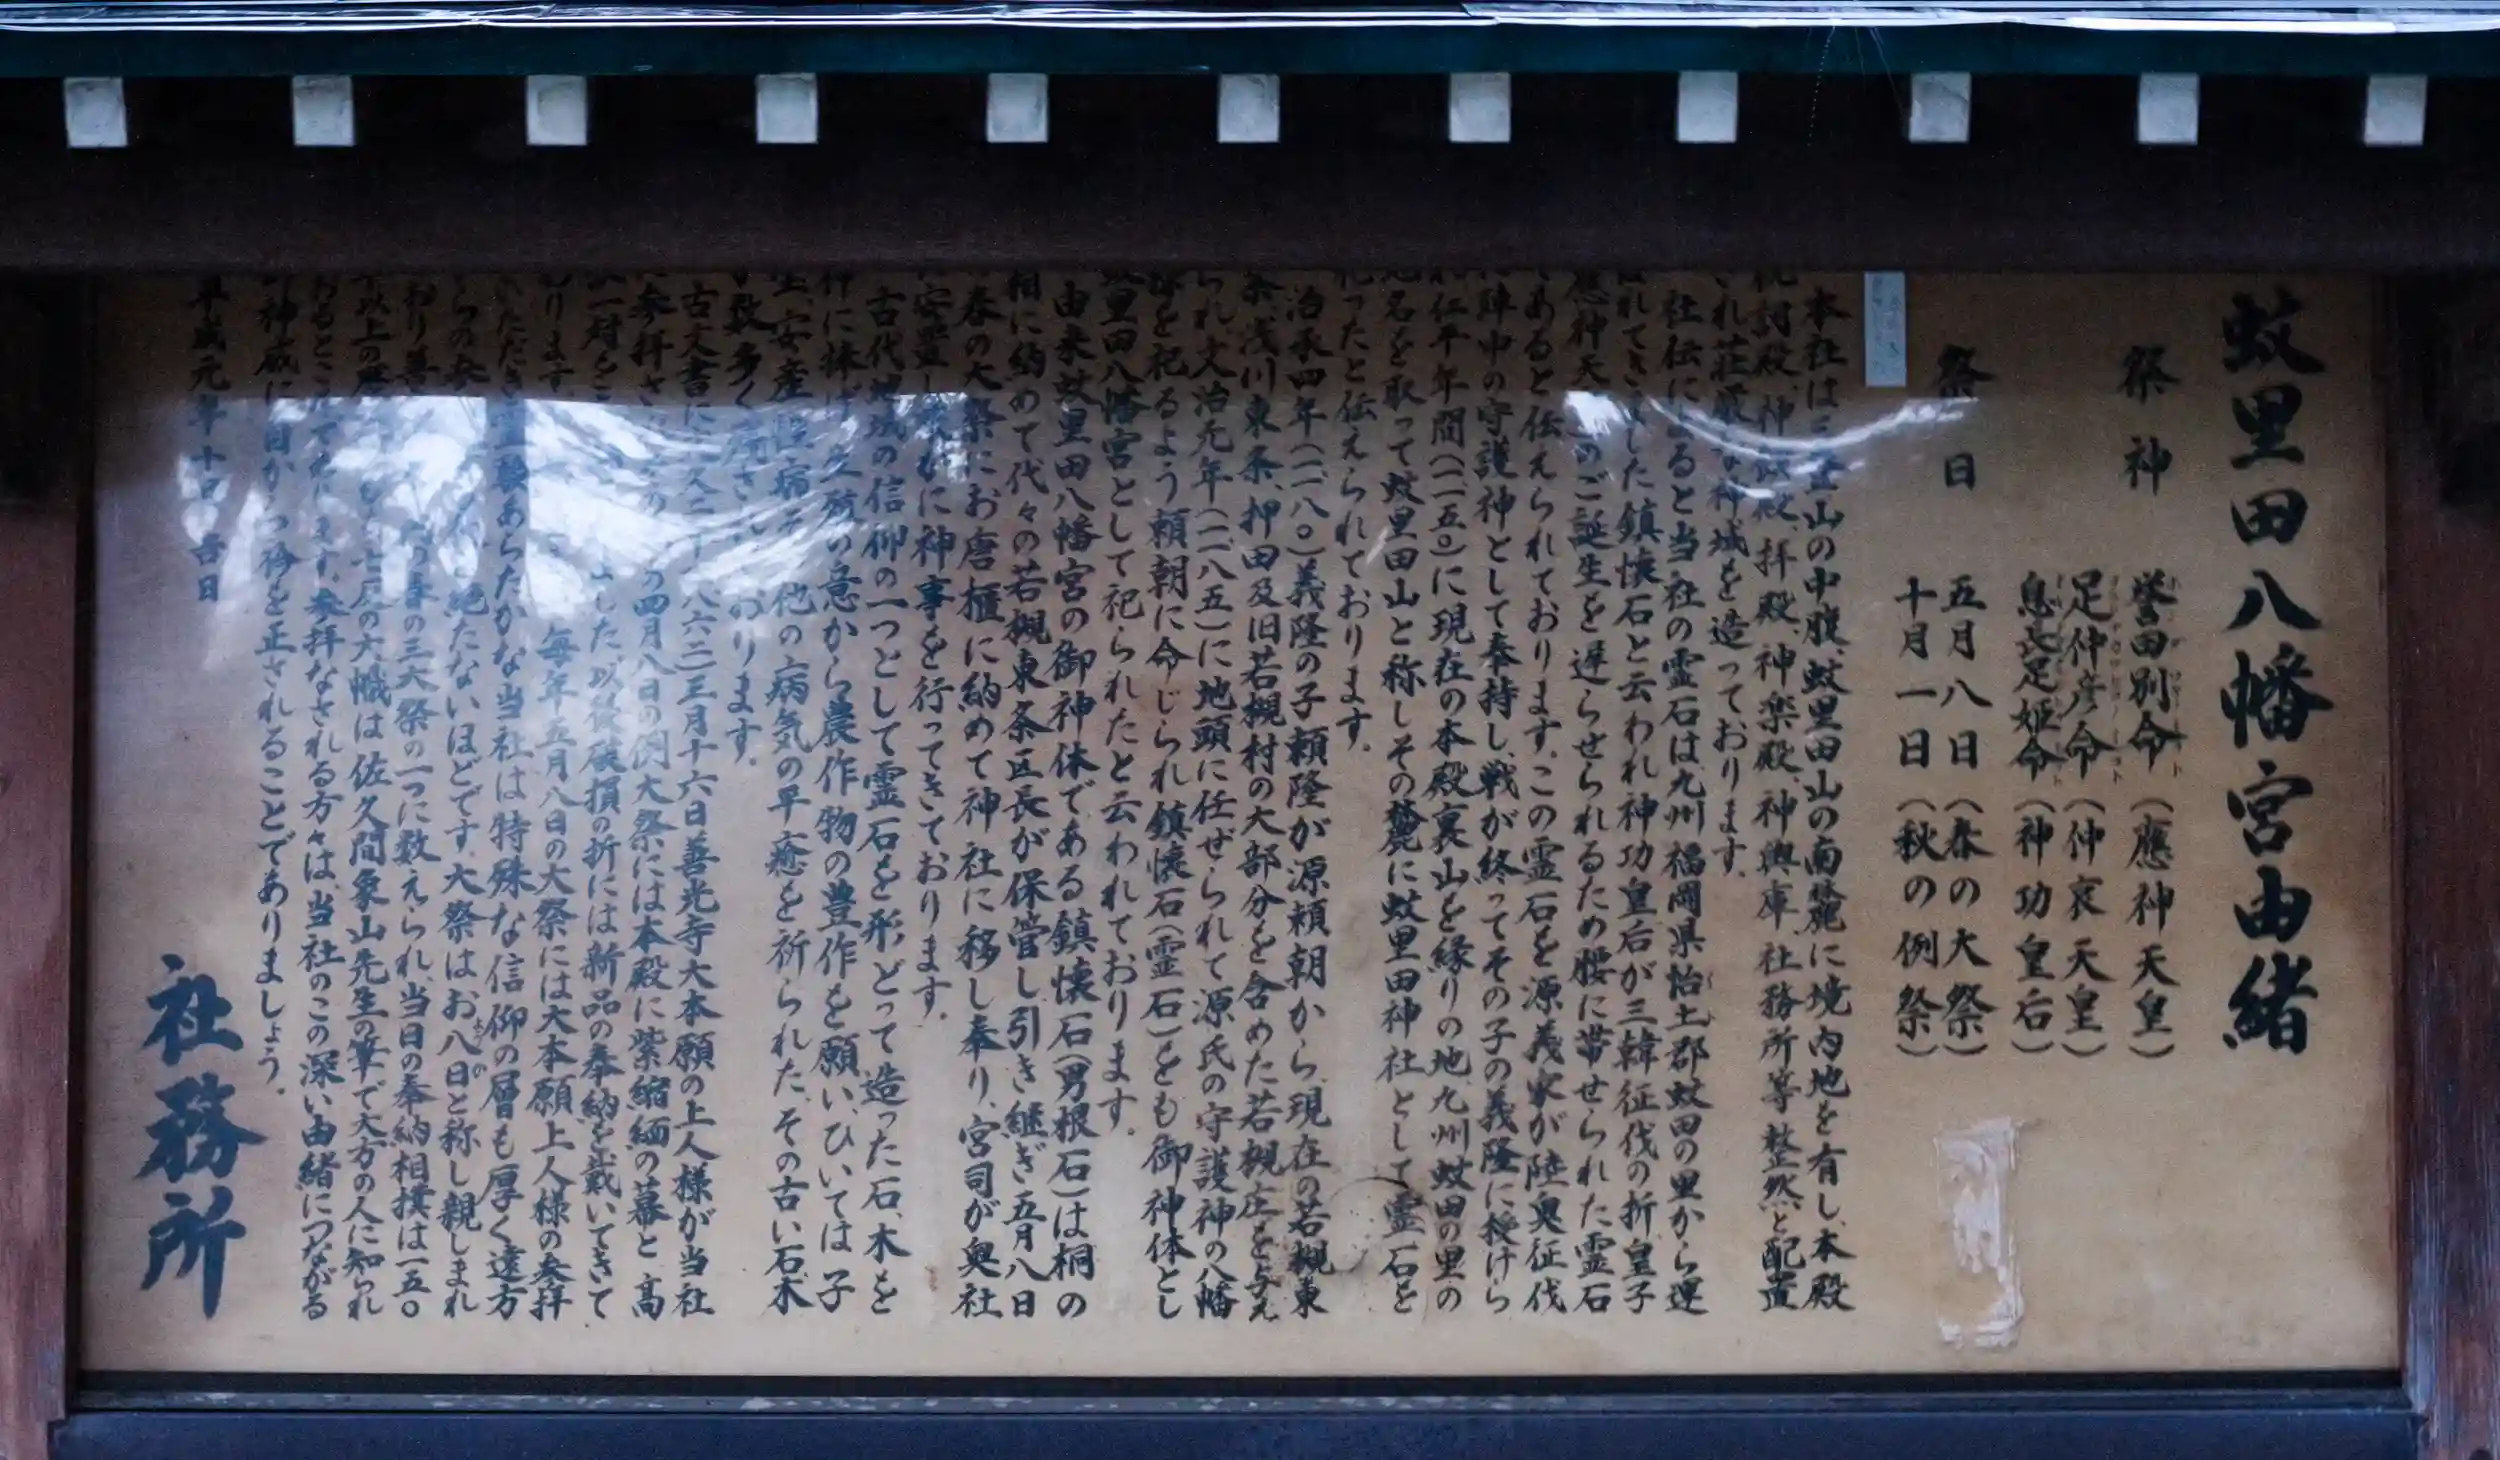 蚊里田八幡宮由緒
祭神
誉田別命（應神天皇）
足仲彦命（仲哀天皇）
息長足姫命（神功皇后）
祭日
五月八日（春の大祭）
十月一日（秋の例祭）
本社は三登山の中腹、蚊里田山の南麓に境内地を有し、本殿
祝詞殿、神饌殿、拝殿、神楽殿、神輿庫、社務所等整然と配置
され荘厳な神域を造っております。
社伝によると当社の霊石は、九州福岡県怡土郡蚊田の里から運
ばれてきました鎮懐石と云われ神功皇后が三韓征伐の折、皇子
應神天皇のご誕生を遅らせられるため腰に帯せられた霊石
であると伝えられております。この霊石を源義家が陸奥征伐
陣中の守護神として奉持し、戦が終ってその子の義隆に授けら
れ仁平年間（一一五〇）に現在の本殿裏山を縁りの地、九州蚊田の里の
地名を取って蚊里田山と称しその麓に蚊里田神社として霊石を
祀ったと伝えられております。
治承四年（一一八〇）義隆の子頼隆が源頼朝から、現在の若槻東
条、浅川東条、押田及旧若槻村の大部分を含めた若槻庄を与え
られ文治元年（一一八五）に地頭に任ぜられて源氏の守護神の八幡
様を祀るよう頼朝に命じられ鎮懐石（霊石）をも御神体とし
蚊里田八幡宮として祀られたと云われております。
由来蚊里田八幡宮の御神体である鎮懐石（男根石）は桐の
相に納めて代々の若槻東条区長が保管し引き継ぎ五月八日
春の大祭にお唐櫃に納めて神社に移し奉り、宮司が奥社
に安置し神事を行ってきております。
古代地域の信仰の一つとして霊石を形どって造った石、木を
神に捧げ の意から農作物の豊作を願い、ひいては子
安産、 病 他の病気の早癒を祈られた、その古い石、木
数多く おります。
古文書に 三月十六日善光寺大本願の上人様が当社
に参拝 の四月八日の例大祭には本殿に紫縮緬の幕と高
一対を した以後破損の折には新品の奉納を戴いてきて
おります 毎年五月八日の大祭には大本願上人様の参拝
いただき霊験あらたかな当社は特殊な信仰の層も厚く遠方
からの参 絶たないほどです。大祭はお八日と称し親しまれ
ており の春の三大祭の一つに数えられ、当日の奉納相撲は一五〇
以上の 大幟は佐久間象山先生の筆で大方の人に知られ
るところであります。参拝なされる方々は、当社のこの深い由緒につながる
神威に 自から 衿を正されることでありましょう。
平成元年十 吉日
社務所